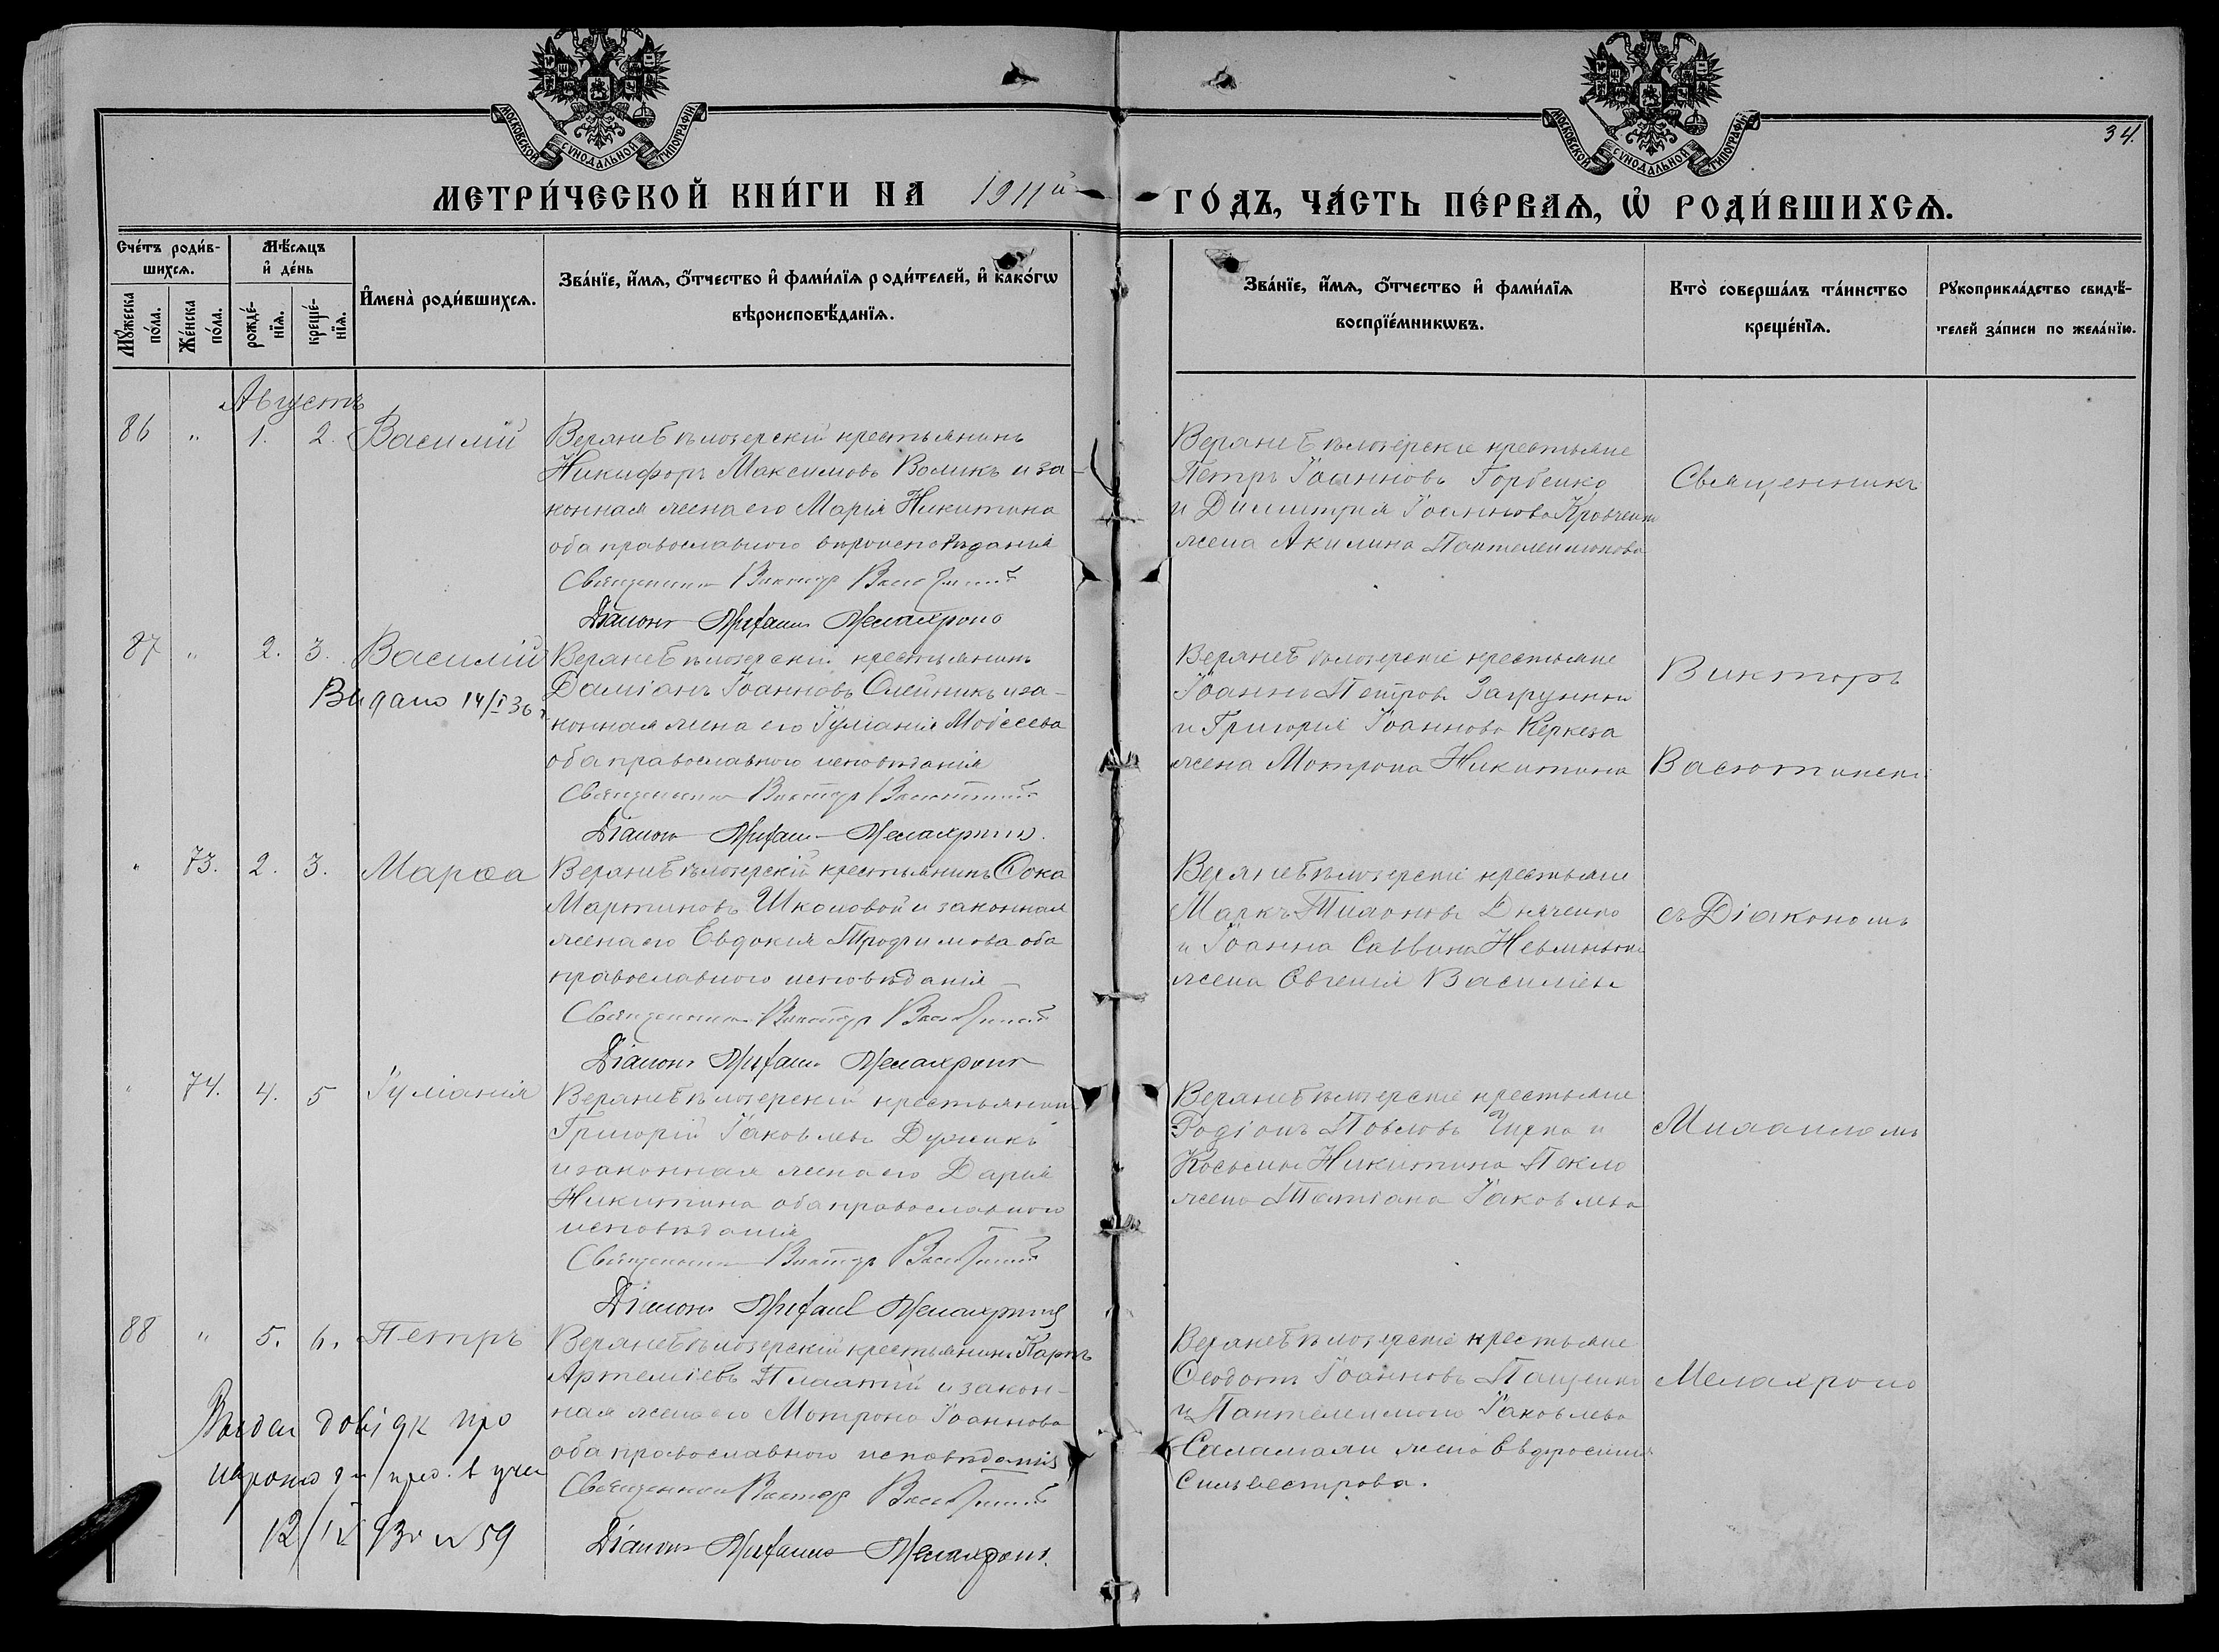 МОСКОВСКОЙ СѴНОДАЛЬНОЙ ТИПОГРАФІИ
МОСКОВСКОЙ СѴНОДАЛЬНОЙ ТИПОГРАФІИ
34.
МЕТРИ́ЧЕСКОЙ КНИ́ГИ НА 1911й ГО́ДЪ, ЧА́СТЬ ПЕ́РВАѦ, Ѡ҆ РОДИ́ВШИХСѦ.
Сче́тъ роди́в-
шихсѧ.
Мꙋ́жеска
по́ла.
Же́нска
по́ла.
Мѣ́сѧцъ
и҆ де́нь
рожде́-
нїѧ.
креще́-
нїѧ.
И҆мена̀ роди́вшихсѧ.
Зва́нїе, и҆́мѧ, ѻ҆́тчество и҆ фами́лїѧ роди́телей, и҆ како́гѡ
вѣроисповѣ́данїѧ.
Зва́нїе, и҆́мѧ, ѻ҆́тчество и҆ фами́лїѧ
воспрїе́мникѡвъ.
Кто̀ соверша́лъ та́инство
креще́нїѧ.
Рꙋкоприкла́дство свидѣ́-
телей за́писи по жела́нїю.
Августъ
86 " 1. 2. Василій
Верхнебѣлозерскій крестьянинъ
Никифоръ Максимовъ Воликъ и за-
конная жена его Марія Никитина
оба православного вѣроисповѣданія
Священникъ Викторъ Васютинскій
Діаконъ Мелахроно
Верхнебѣлозерскіе крестьяне
Петръ Іоанновъ Горбенко
и Димитрія Іоаннова Кравченко
жена Акилина Пантелеимонова
Священникъ
87 " 2. 3. Василій
Видано 14/I 36
Верхнебѣлозерскій крестьянинъ
Даміанъ Іоанновъ Олейникъ и за-
конная жена его Іуліанія Моѵсеева
оба православного исповѣданія
Священникъ Викторъ Васютинскій
Діаконъ Мелахроно.
Верхнебѣлозерскіе крестьяне
Іоаннъ Петровъ
и Григорія Іоаннова Керкеза
жена Мотрона Никитина
Викторъ
Васютинскі
" 73. 2. 3. Марѳа
Верхнебѣлозерскій крестьянинъ Ѳока
Мартиновъ Школовой и законная
жена его Евдокія Трофимова оба
православного исповѣданія
Священникъ Викторъ Васютинскій
Діаконъ Мелахроно
Верхнебѣлозерскіе крестьяне
Маркъ Дяченко
и Іоанна Саввина
жена Евгенія Василіева
съ Діакономъ
" 74. 4. 5 Іуліанія
Верхнебѣлозерскій крестьянинъ
Григорій Іаковлевъ Дужикъ
и законная жена его Дарія
Никитина оба православного
исповѣданія
Священникъ Викторъ Васютинскій
Діаконъ Мелахроно
Верхнебѣлозерскіе крестьяне
Родіонъ Павловъ Чирка и
Косьмы Никитина Пекло
жена Татіана Іаковлева
88 " 5. 6. Петръ
Верхнебѣлозерскій крестьянинъ Карпъ
Артеміевъ и закон-
ная жена его Мотрона Іоаннова
оба православного исповѣданія
Священникъ Викторъ Васютинскій
Діаконъ Мелахроно.
Верхнебѣлозерскіе крестьяне
Ѳеодотъ Іоанновъ Пащенко
и Пантелеимона Іаковлева
жена Евфросинія
Сильвестрова.
Мелахроно
довідк про
12/IV 93 N 59